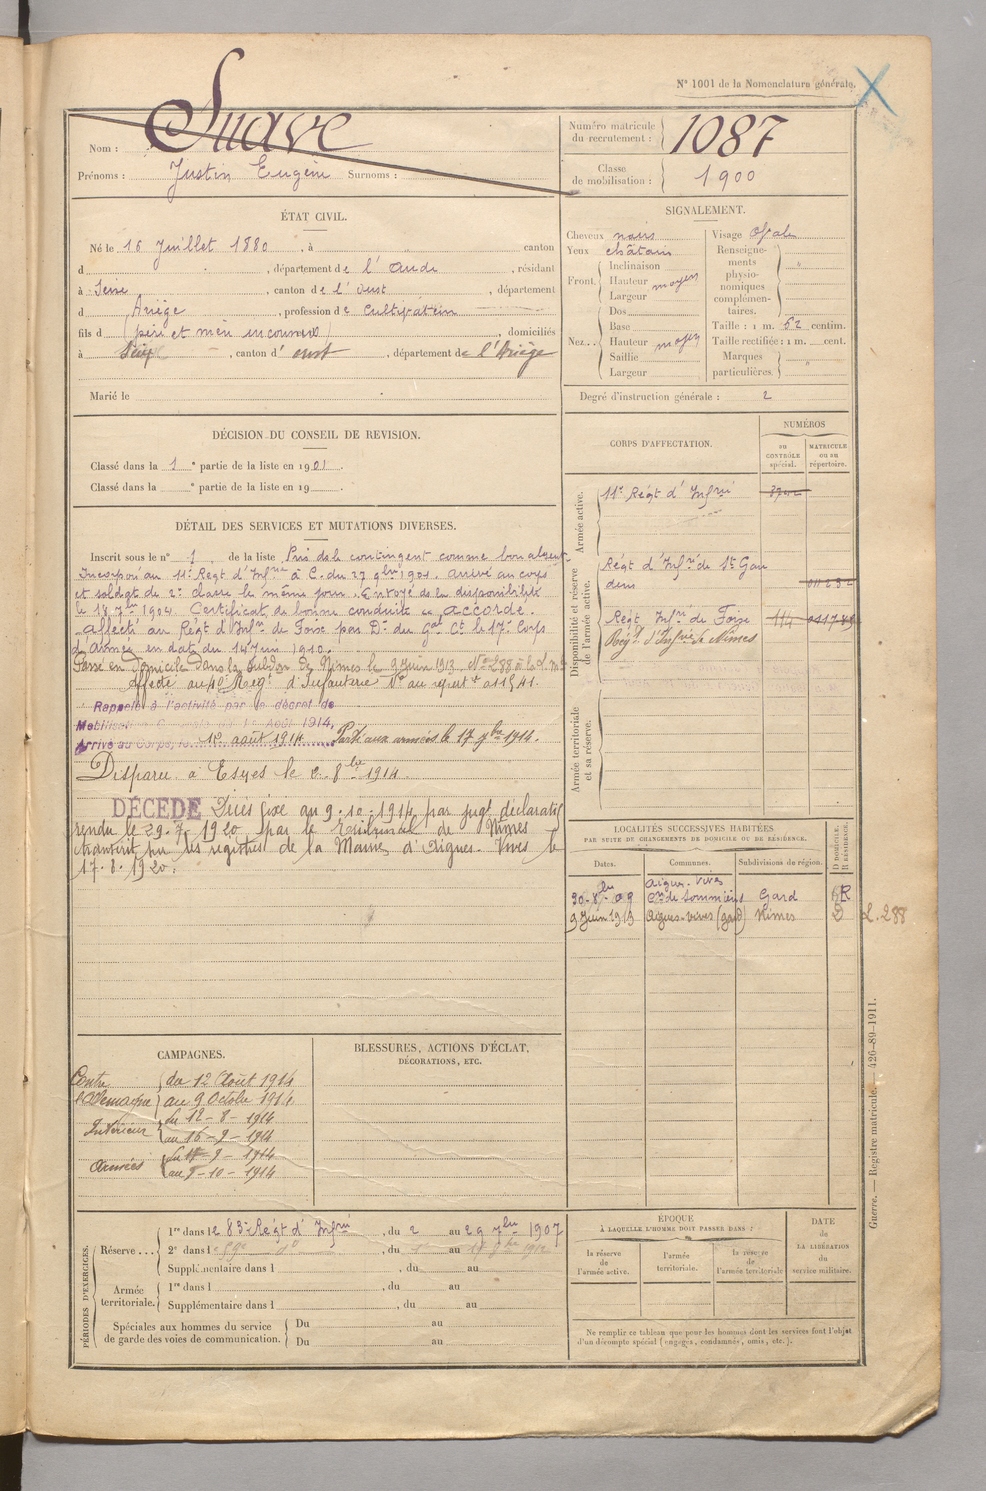 N° 1001 de la Nomenclature générale.
Nom : Suave
Prénoms : Justin Eugène Surnoms :
Numéro matricule du recrutement : 1087
Classe de mobilisation : 1900
ÉTAT CIVIL.
Né le 16 Juillet 1880, à canton
d, département de l'Aude, résidant
à Seix, canton de l' Oust, département
d Ariège, profession de Cultivateur
fils d (père et mère inconnus), domiciliés
à Seix, canton d' oust, département de l'Ariège
Marié le
SIGNALEMENT.
Cheveux noirs
Yeux châtain
Front. Inclinaison
Hauteur moyen
Largeur
Nez.. Dos
Base
Hauteur moyen
Saillie
Largeur
Visage Ovale
Renseignements physionomiques complémentaires.
Taille : 1 m. 62 centim.
Taille rectifiée : 1 m. cent.
Marques particulières.
Degré d'instruction générale : 2
DÉCISION DU CONSEIL DE REVISION.
Classé dans la 1 e partie de la liste en 1901.
Classé dans la e partie de la liste en 19
CORPS D'AFFECTATION.
NUMÉROS
au CONTRÔLE spécial.
MATRICULE ou au répertoire.
Armée active.
11e Régt d' Infrie
Disponibilité et réserve de l'armée active.
Régt d'Infrie de St Gau
dens
Régt Infrie de Foix 114
Régt d'Infrie de Nîmes
Armée territoriale et sa réserve.
DÉTAIL DES SERVICES ET MUTATIONS DIVERSES.
Inscrit sous le n° 1 de la liste Pris de le contingent comme bon absent
Incorporé au 11e Régt d'Infrie à C. du 27 9bre 1901. Arrivé au corps
et soldat de 2e classe le même jour. Envoyé de la disponibilité
le 18 7bre 1904. Certificat de bonne conduite "accordé".
Affecté au Régt d'Infrie de Foix par Don du Gal Ct le 17e Corps
d'Armée en date du 14 Juin 1910.
Passé en domicile dans la Subdon de Nîmes le 9 Juin 1913. N° 288 à la L.
Affecté au 40e Régt d'Infanterie N° au répert
Rappelé à l'activité par le décret de
Mobilisation Générale du 1er Août 1914,
Arrivé au Corps, le 12 août 1914. Parti aux armées le 17 7bre 1914.
Disparu à Esyes le 9. 8bre 1914.
DÉCÉDÉ Décès fixé au 9-10-1914 par jugt déclaratif
rendu le 29.7.1920 par le Tribunal de Nîmes
transcrit sur les registres de la Mairie d'Aigues-Vives le
17.8.1920.
LOCALITÉS SUCCESSIVES HABITÉES
PAR SUITE DE CHANGEMENTS DE DOMICILE OU DE RÉSIDENCE.
Dates.
Communes.
Subdivisions de région.
D DOMICILE. R RÉSIDENCE.
Aigues-Vives
30-8bre 09 Con de Sommières Gard R
9 Juin 1913 Aigues-vives (gard) Nîmes D L. 288
CAMPAGNES.
Contre l'Allemagne du 12 Août 1914
au 9 Octobre 1914
Intérieur du 12-8-1914
au 16-9-1914
Armées du 17-9-1914
au 9-10-1914
BLESSURES, ACTIONS D'ÉCLAT,
DÉCORATIONS, ETC.
PÉRIODES D'EXERCICES.
Réserve... 1re dans le 83e Régt d' Infrie, du 2 au 29 7bre 1907
2e dans l, du au
Supplémentaire dans l, du au
Armée territoriale. 1re dans l, du au
Supplémentaire dans l, du au
Spéciales aux hommes du service de garde des voies de communication. Du au
Du au
ÉPOQUE
À LAQUELLE L'HOMME DOIT PASSER DANS :
la réserve de l'armée active.
l'armée territoriale.
la réserve de l'armée territoriale
DATE de LA LIBÉRATION du service militaire.
Ne remplir ce tableau que pour les hommes dont les services font l'objet
d'un décompte spécial (engagés, condamnés, omis, etc.).
Guerre. — Registre matricule. — 426-89-1911.